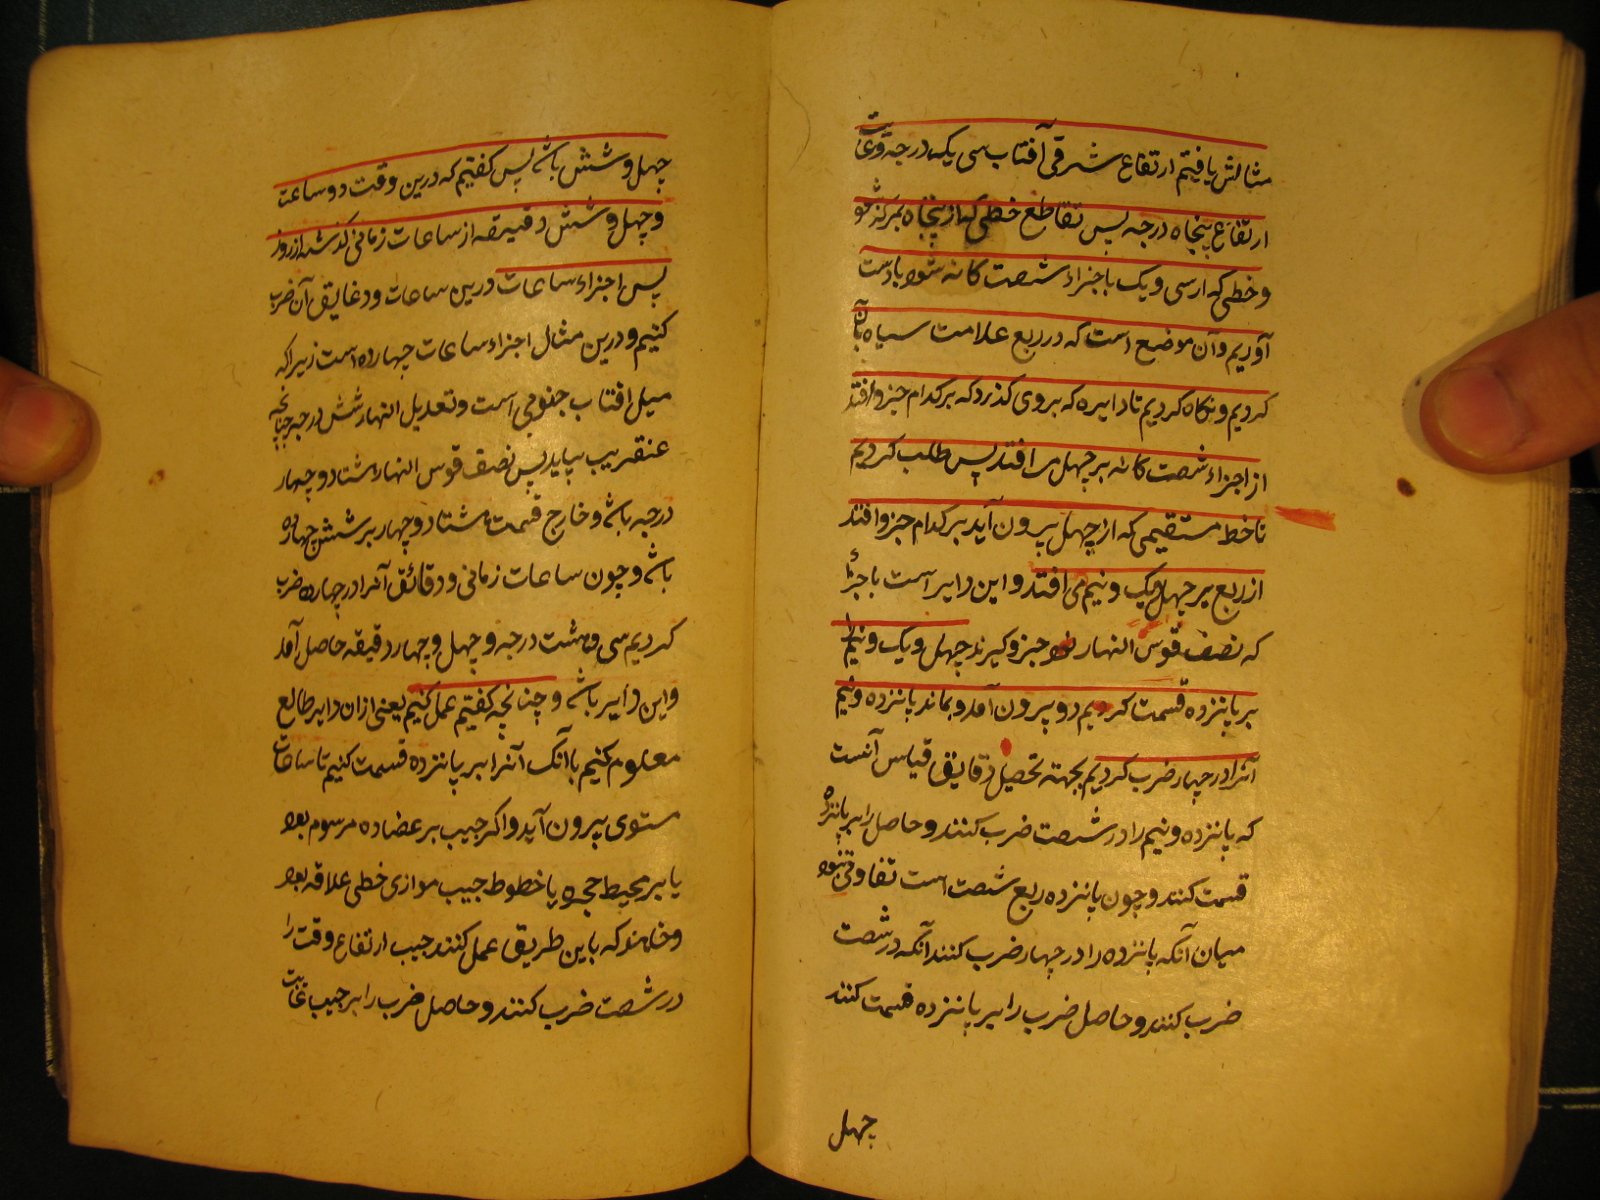 مثالش یافتیم ارتفاع شرقی آفتاب سی یک درجه و غایت
ارتفاع پنجاه درجه پس تقاطع خطی که از پنجاه بمرکز شود
و خطی که از سی و یک باجزاء شصت کانه شود بادست
آوریم و آن موضع است که در ربع علامت سیاه بآن
کردیم و نکاه کردیم تا دایره که بروی کذرد که بر کدام جزو افتد
از اجزاء شصت کانه بر چهل می افتد پس طلب کردیم
تا خط مستقیمی که از چهل بیرون آید بر کدام جزو افتد
از ربع بر چهل و یک و نیم می افتد و این دایر است باجزاء
که نصف قوس النهار نود جزو کیرند چهل و یک و نیم را
بر پانزده قسمت کردیم دو بیرون آمد و بماند پانزده و نیم
آنرا در چهار ضرب کردیم بجهته تحصیل دقایق قیاس آنست
که پانزده و نیم را در شصت ضرب کنند و حاصل را بر پانزده
قسمت کنند و چون پانزده ربع شصت است تفاوتی نبود
میان آنکه پانزده را در چهار ضرب کنند آنکه در شصت
ضرب کنند و حاصل ضرب را بر پانزده قسمت کنند
چهل
چهل و شش باشد پس کفتیم که درین وقت دو ساعت
و چهل و شش دقیقه از ساعات زمانی کذشته از روز
پس اجزاء ساعات درین ساعات و دغایق آن ضرب
کنیم و درین مثال اجزاء ساعات چهارده است زیرا که
میل افتاب جنوبی است و تعدیل النهار شش درجه چنانچه
عنقریب بیاید پس نصف قوس النهار هشتاد و چهار
درجه باشد و خارج قسمت هشتاد و چهار بر شش چهارده
باشد و چون ساعات زمانی و دقائق آنرا در چهارده ضرب
کردیم سی و هشت درجه و چهل و چهار دقیقه حاصل آمد
و این دایر باشد و چنانچه کفتیم عمل کنیم یعنی ازان دایر طالع
معلوم کنیم باآنک آنرا بر پانزده قسمت کنیم تا ساعات
مستوی بیرون آید و اکر جیب بر عضاده مرسوم بود
یا بر محیط حجره یا خطوط جیب موازی خطی علاقه بود
و خاهند که باین طریق عمل کنند جیب ارتفاع وقت را
در شصت ضرب کنند و حاصل ضرب را بر جیب غایت